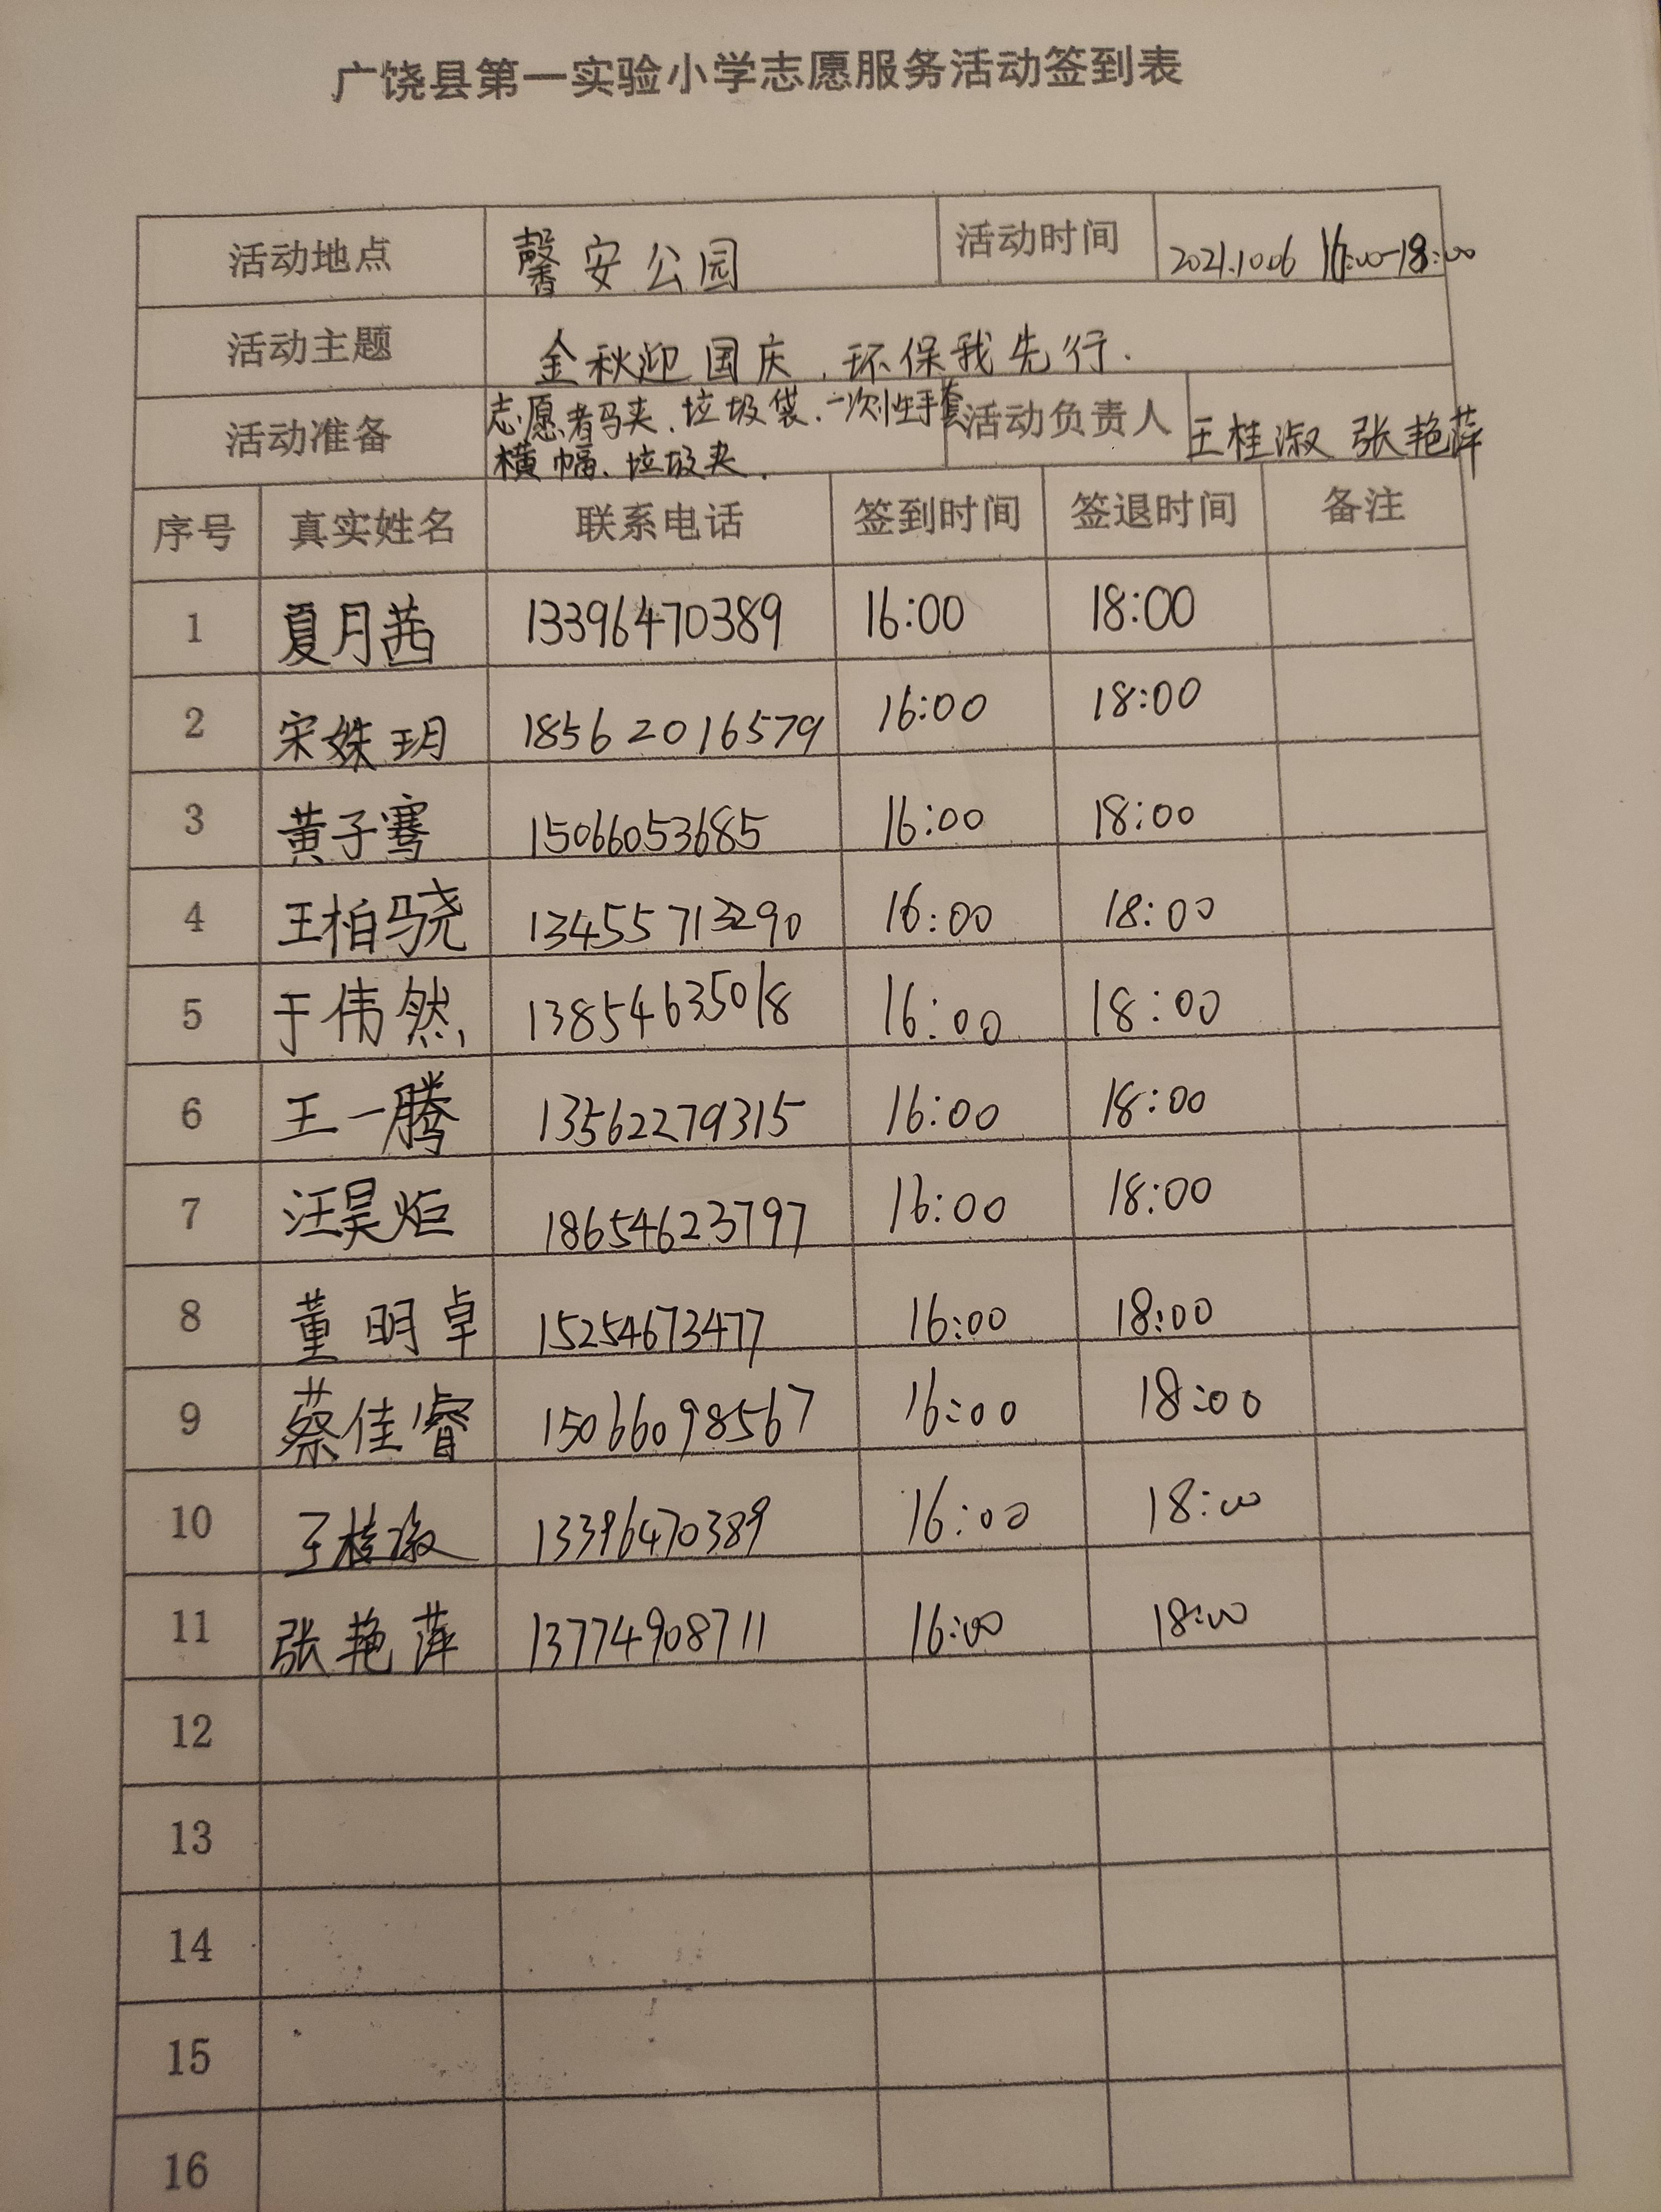 广饶县第一实验小学志愿服务活动签到表
活动地点 馨安公园 活动时间 2021.10.06 16:00-18:00
活动主题 金秋迎国庆,环保我先行.
活动准备 志愿者马夹、垃圾袋、一次性手套 横幅、垃圾夹. 活动负责人 王桂淑 张艳萍
序号 真实姓名 联系电话 签到时间 签退时间 备注
1 夏月茜 13396470389 16:00 18:00
2 宋姝玥 18562016579 16:00 18:00
3 黄子骞 15066053685 16:00 18:00
4 王柏骁 13455713290 16:00 18:00
5 于伟然 13854635018 16:00 18:00
6 王一腾 13562279315 16:00 18:00
7 汪昊炬 18654623797 16:00 18:00
8 董明卓 15254673477 16:00 18:00
9 蔡佳睿 15066098567 16:00 18:00
10 王桂淑 13396470389 16:00 18:00
11 张艳萍 13774908711 16:00 18:00
12
13
14
15
16